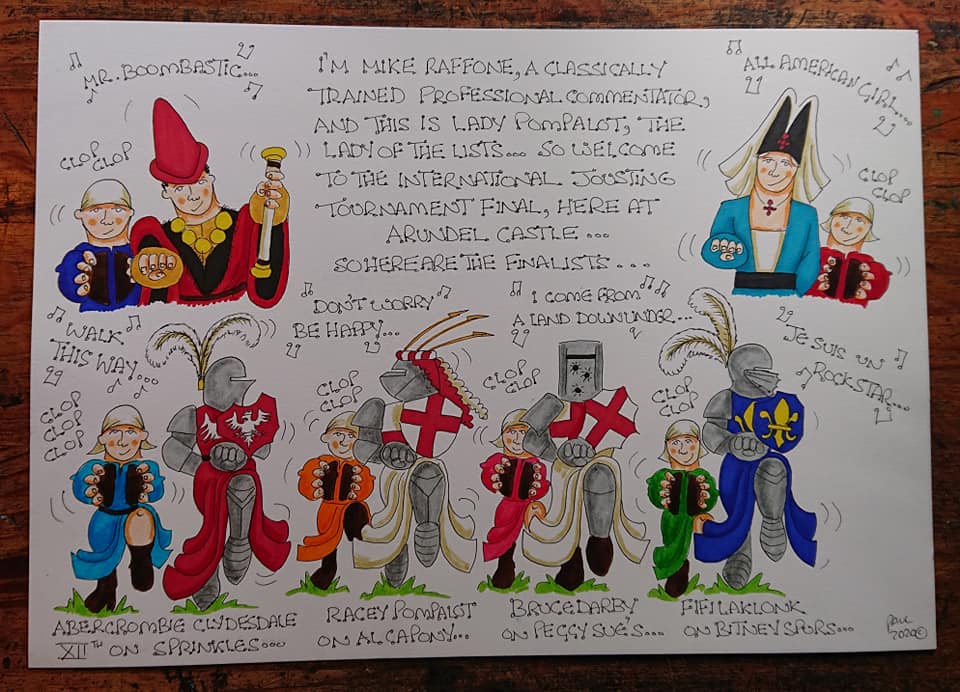 MR. BOOMBASTIC...
CLOP
CLOP
I'M MIKE RAFFONE, A CLASSICALLY
TRAINED PROFESSIONAL COMMENTATOR,
AND THIS IS LADY POMPALOT, THE
LADY OF THE LISTS... SO WELCOME
TO THE INTERNATIONAL JOUSTING
TOURNAMENT FINAL, HERE AT
ARUNDEL CASTLE ...
SO HERE ARE THE FINALISTS ...
ALL AMERICAN GIRL....
CLOP
CLOP
WALK
THIS WAY....
CLOP
CLOP
CLOP
CLOP
DON'T WORRY
BE HAPPY...
CLOP
CLOP
I COME FROM
A LAND DOWN UNDER...
CLOP
CLOP
JE SUIS UN
ROCKSTAR....
CLOP
CLOP
ABERCROMBIE CLYDESDALE
XIITH ON SPRINKLES...
RACEY POMPALOT
ON AL CAPONY...
BRUCE DARBY
ON PEGGY SUE'S....
FIFI LAKLONK
ON BITNEY SPURS...
2020©